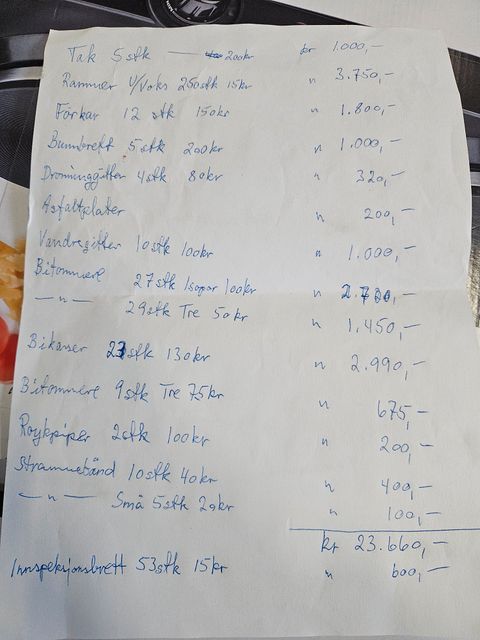 Tak 5 stk — 200kr kr 1.000,-
Rammer U/Voks 250stk 15kr " 3.750,-
Forkar 12 stk 150kr " 1.800,-
Bunnbrett 5 stk 200kr " 1.000,-
Dronninggitter 4stk 80kr " 320,-
Asfaltplater " 200,-
Vandregitter 10stk 100kr " 1.000,-
Bitømmere 27stk Isopor 100kr " 2.700,-
—"— 29stk Tre 50kr " 1.450,-
Bikasser 23stk 130kr " 2.990,-
Bitømmere 9stk Tre 75kr " 675,-
Røykpiper 2stk 100kr " 200,-
Strammebånd 10stk 40kr " 400,-
—"— Små 5stk 20kr " 100,-
kr 23.660,-
Innspeksjonsbrett 53stk 15kr " 600,-